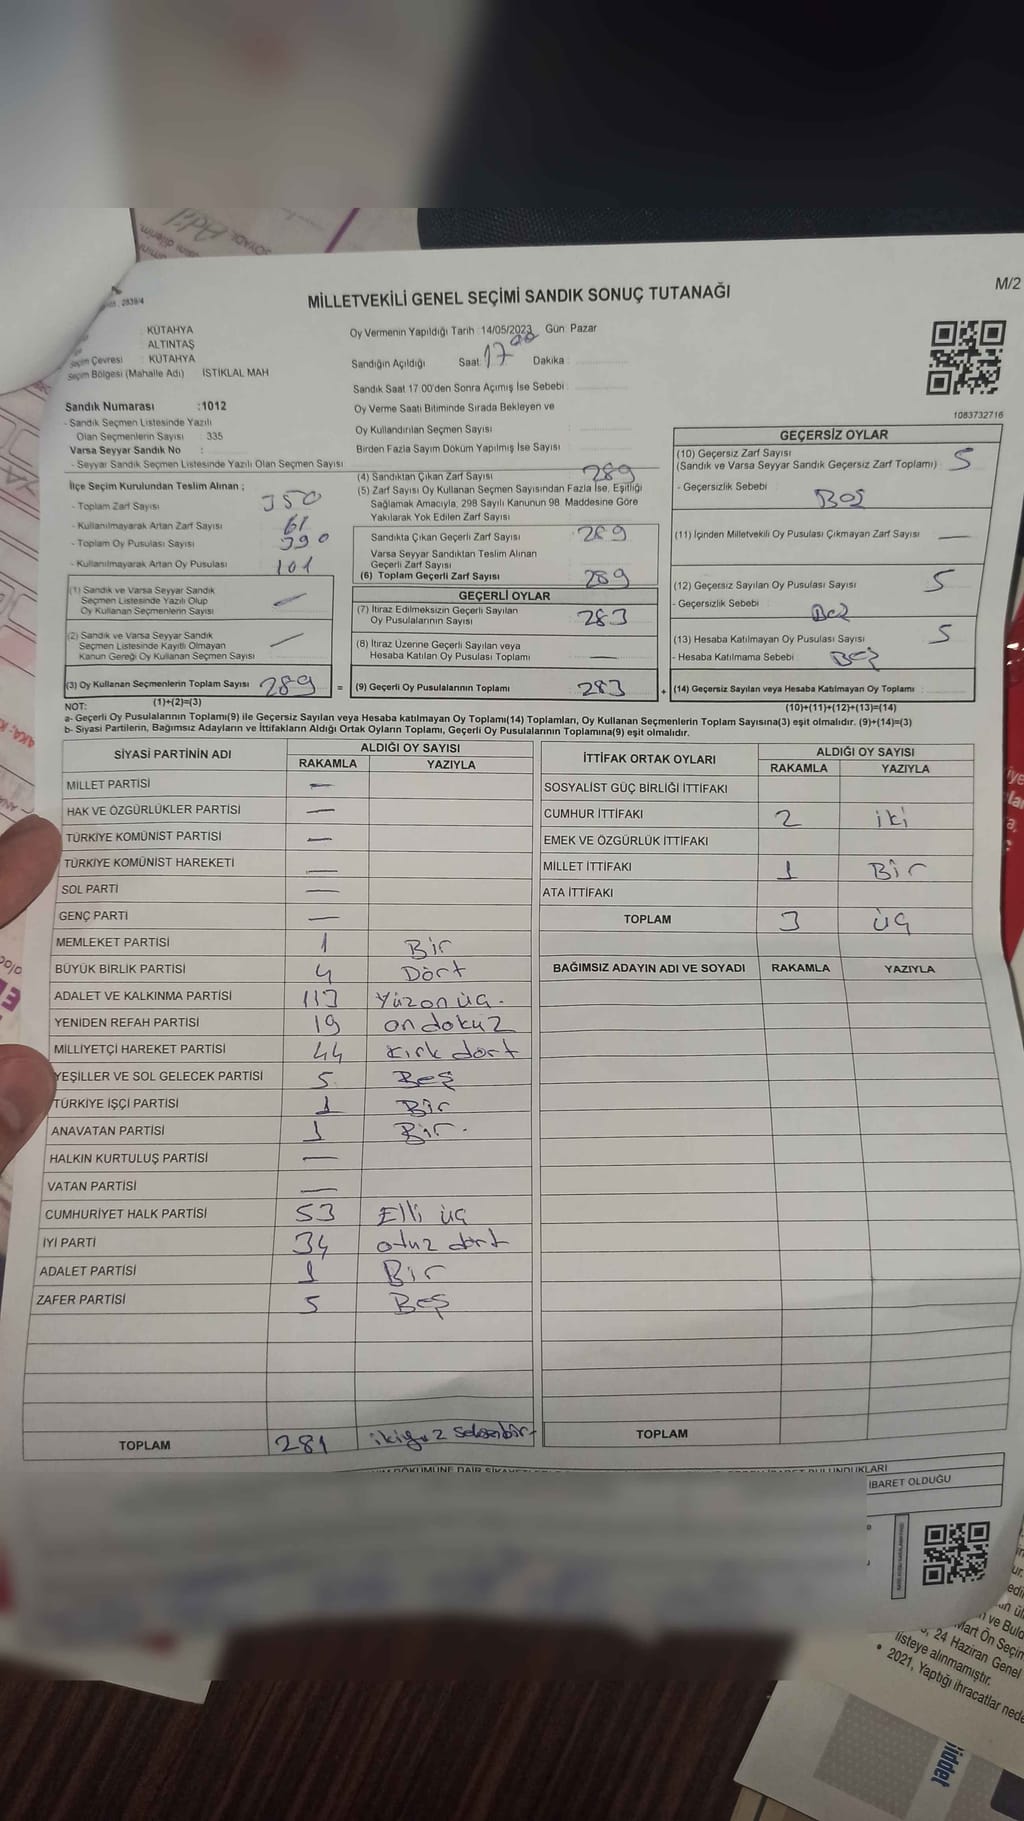 MİLLETVEKİLİ GENEL SEÇİMİ SANDIK SONUÇ TUTANAĞI
M/2
KÜTAHYA
ALTINTAŞ
Seçim Çevresi : KÜTAHYA
Seçim Bölgesi (Mahalle Adı) İSTİKLAL MAH
Sandık Numarası :1012
- Sandık Seçmen Listesinde Yazılı
Olan Seçmenlerin Sayısı : 335
Varsa Seyyar Sandık No :
- Seyyar Sandık Seçmen Listesinde Yazılı Olan Seçmen Sayısı
Oy Vermenin Yapıldığı Tarih : 14/05/2023 Gün: Pazar
Sandığın Açıldığı Saat: 17 00 Dakika :
Sandık Saat 17:00'den Sonra Açımış İse Sebebi :
Oy Verme Saati Bitiminde Sırada Bekleyen ve
Oy Kullandırılan Seçmen Sayısı :
Birden Fazla Sayım Döküm Yapılmış İse Sayısı :
1083732716
İlçe Seçim Kurulundan Teslim Alınan ;
- Toplam Zarf Sayısı : 350
- Kullanılmayarak Artan Zarf Sayısı : 61
- Toplam Oy Pusulası Sayısı : 390
- Kullanılmayarak Artan Oy Pusulası : 101
(1) Sandık ve Varsa Seyyar Sandık
Seçmen Listesinde Yazılı Olup
Oy Kullanan Seçmenlerin Sayısı —
(2) Sandık ve Varsa Seyyar Sandık
Seçmen Listesinde Kayıtlı Olmayan
Kanun Gereği Oy Kullanan Seçmen Sayısı —
(3) Oy Kullanan Seçmenlerin Toplam Sayısı 289 =
(1)+(2)=(3)
(4) Sandıktan Çıkan Zarf Sayısı 289
(5) Zarf Sayısı Oy Kullanan Seçmen Sayısından Fazla İse, Eşitliği
Sağlamak Amacıyla, 298 Sayılı Kanunun 98. Maddesine Göre
Yakılarak Yok Edilen Zarf Sayısı
Sandıkta Çıkan Geçerli Zarf Sayısı : 289
Varsa Seyyar Sandıktan Teslim Alınan
Geçerli Zarf Sayısı
(6) Toplam Geçerli Zarf Sayısı 289
GEÇERLİ OYLAR
(7) İtiraz Edilmeksizin Geçerli Sayılan
Oy Pusulalarının Sayısı : 283
(8) İtiraz Üzerine Geçerli Sayılan veya
Hesaba Katılan Oy Pusulası Toplamı : —
(9) Geçerli Oy Pusulalarının Toplamı : 283 +
GEÇERSİZ OYLAR
(10) Geçersiz Zarf Sayısı
(Sandık ve Varsa Seyyar Sandık Geçersiz Zarf Toplamı) : 5
- Geçersizlik Sebebi : Boş
(11) İçinden Milletvekili Oy Pusulası Çıkmayan Zarf Sayısı : —
(12) Geçersiz Sayılan Oy Pusulası Sayısı : 5
- Geçersizlik Sebebi :
(13) Hesaba Katılmayan Oy Pusulası Sayısı : 5
- Hesaba Katılmama Sebebi :
(14) Geçersiz Sayılan veya Hesaba Katılmayan Oy Toplamı :
(10)+(11)+(12)+(13)=(14)
NOT:
a- Geçerli Oy Pusulalarının Toplamı(9) ile Geçersiz Sayılan veya Hesaba katılmayan Oy Toplamı(14) Toplamları, Oy Kullanan Seçmenlerin Toplam Sayısına(3) eşit olmalıdır. (9)+(14)=(3)
b- Siyasi Partilerin, Bağımsız Adayların ve İttifakların Aldığı Ortak Oyların Toplamı, Geçerli Oy Pusulalarının Toplamına(9) eşit olmalıdır.
SİYASİ PARTİNİN ADI ALDIĞI OY SAYISI
RAKAMLA YAZIYLA
MİLLET PARTİSİ —
HAK VE ÖZGÜRLÜKLER PARTİSİ —
TÜRKİYE KOMÜNİST PARTİSİ —
TÜRKİYE KOMÜNİST HAREKETİ —
SOL PARTİ —
GENÇ PARTİ —
MEMLEKET PARTİSİ 1 Bir
BÜYÜK BİRLİK PARTİSİ 4 Dört
ADALET VE KALKINMA PARTİSİ 113 Yüzonüç.
YENİDEN REFAH PARTİSİ 19 on dokuz
MİLLİYETÇİ HAREKET PARTİSİ 44 Kırk dört
YEŞİLLER VE SOL GELECEK PARTİSİ 5 Beş
TÜRKİYE İŞÇİ PARTİSİ 1 Bir
ANAVATAN PARTİSİ 1 Bir.
HALKIN KURTULUŞ PARTİSİ —
VATAN PARTİSİ —
CUMHURİYET HALK PARTİSİ 53 Elli üç
İYİ PARTİ 34 otuz dört
ADALET PARTİSİ 1 Bir
ZAFER PARTİSİ 5 Beş
TOPLAM 281 ikiyüz seksenbir
İTTİFAK ORTAK OYLARI ALDIĞI OY SAYISI
RAKAMLA YAZIYLA
SOSYALİST GÜÇ BİRLİĞİ İTTİFAKI
CUMHUR İTTİFAKI 2 iki
EMEK VE ÖZGÜRLÜK İTTİFAKI
MİLLET İTTİFAKI 1 Bir
ATA İTTİFAKI
TOPLAM 3 üç
BAĞIMSIZ ADAYIN ADI VE SOYADI RAKAMLA YAZIYLA
TOPLAM
İBARET OLDUĞU
Mart Ön Seçim
, 24 Haziran Genel
listeye alınmamıştır.
• 2021, Yaptığı ihracatlar nede